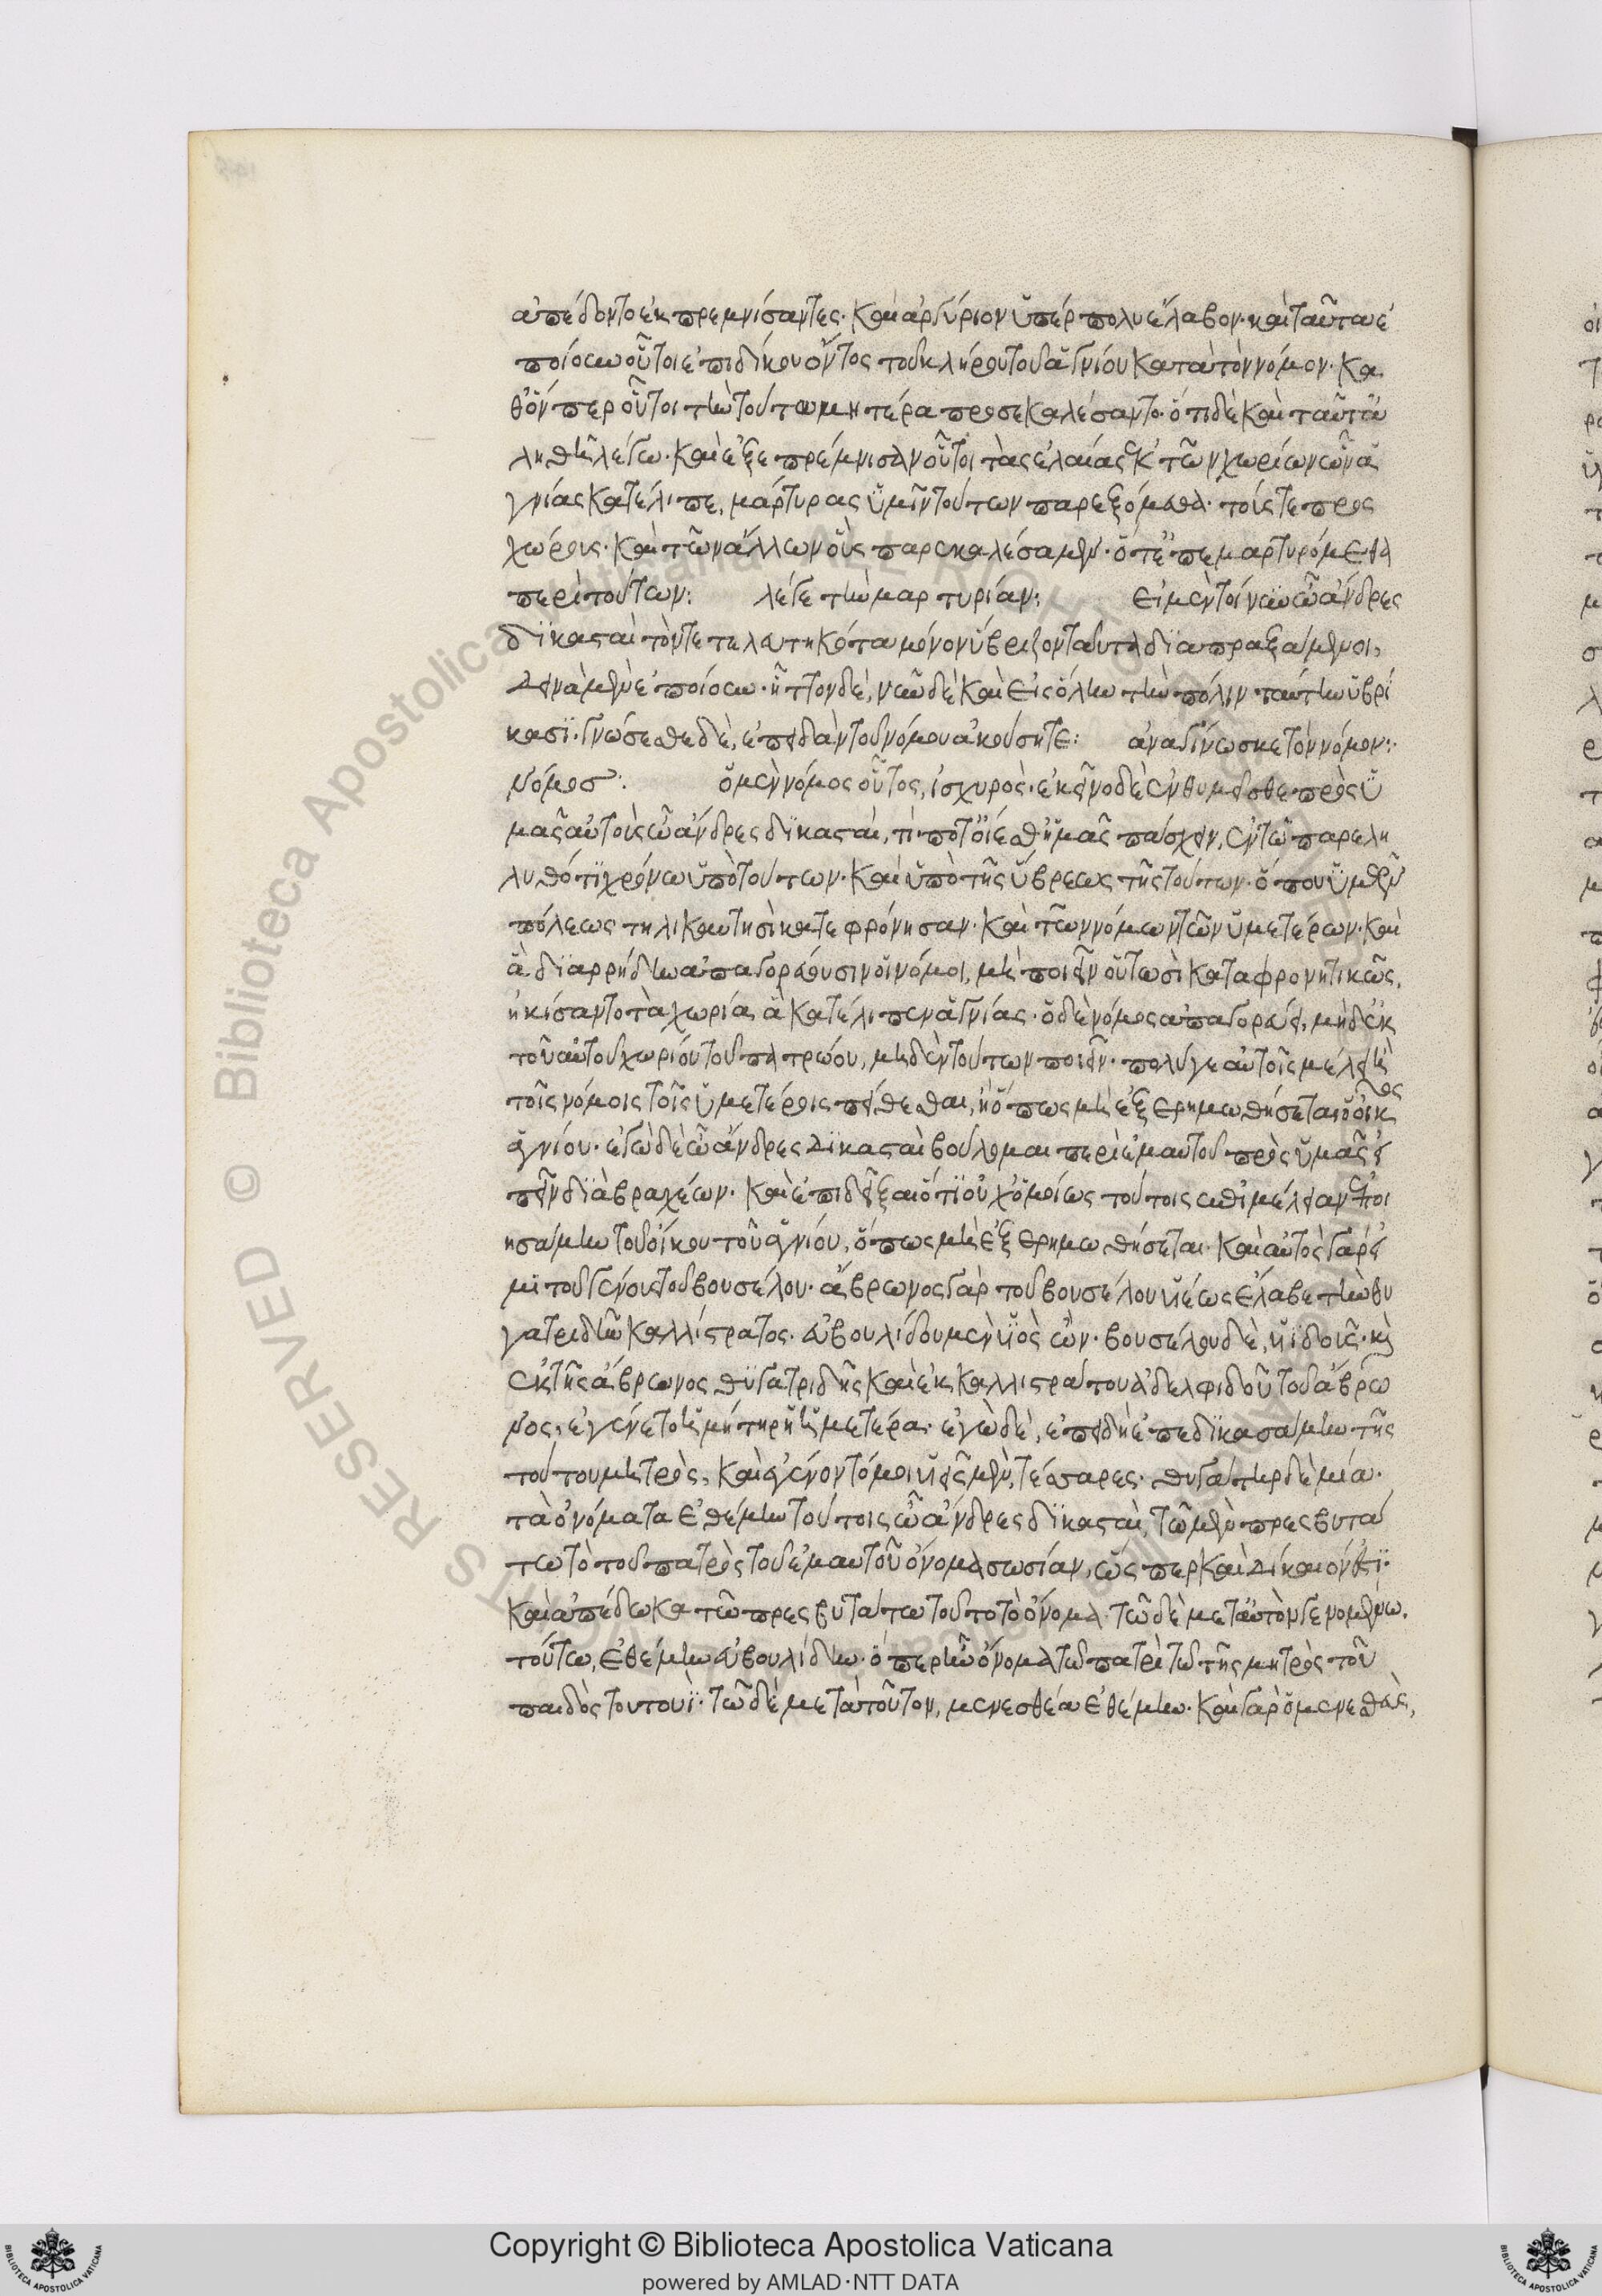 ἀπέδοντο ἐκπρεμνίσαντες· καὶ ἀργύριον ὑπέρπολυ ἔλαβον· καὶ ταῦτα ἐ
ποίουν οὗτοι ἐπιδίκου ὄντος τοῦ κλήρου τοῦ ἁγνίου κατὰ τὸν νόμον· κα
θ' ὅν περ οὗτοι τὴν τούτου μητέρα προσεκαλέσαντο· ὅτι δὲ καὶ ταῦτ' ἀ
ληθῆ λέγω· καὶ ἐξεπρέμνισαν οὗτοι τὰς ἐλαίας ἐκ τῶν χωρίων ὧν ἁ
γνίας κατέλιπε, μάρτυρας ὑμῖν τούτων παρεξόμεθα· τούς τε προς
χώρους· καὶ τῶν ἄλλων οὓς παρεκαλέσαμεν· ὅτ' ἐπεμαρτυρόμεθα
περὶ τούτων: λέγε τὴν μαρτυρίαν: εἰ μὲν τοίνυν ὦ ἄνδρες
δικασταὶ τόν τε τελευτηκότα μόνον ὕβριζον ταῦτα διαπραξάμενοι,
δεινὰ μὲν ἐποίουν· ἧττον δέ, νῦν δὲ καὶ εἰς ὅλην τὴν πόλιν ταύτην ὑβρί
κασι· γνώσεσθε δὲ, ἐπειδὰν τοῦ νόμου ἀκούσητε: ἀναγίνωσκε τὸν νόμον:
νόμος: ὁ μὲν νόμος οὗτος, ἰσχυρὸς· ἐκεῖνο δὲ ἐνθυμεῖσθε πρὸς ὑ
μᾶς αὐτοὺς ὦ ἄνδρες δικασταὶ, τί ποτ' οἴεσθ' ἡμᾶς πάσχειν, ἐν τῷ παρελη
λυθότι χρόνω ὑπὸ τούτων· καὶ ὑπὸ τῆς ὕβρεως τῆς τούτων· ὅπου ὑμῶν
πόλεως τηλικαυτησὶ κατεφρόνησαν· καὶ τῶν νόμων τῶν ὑμετέρων· καὶ
ἃ διαρρήδην ἀπαγορεύουσιν οἱ νόμοι, μὴ ποιεῖν οὑτωσὶ καταφρονητικῶς,
ᾐκίσαντο τὰ χωρία ἃ κατέλιπεν ἁγνίας· ὁ δὲ νόμος ἀπαγορεύει, μηδ' ἐκ
τοῦ αὐτοῦ χωρίου τοῦ πατρώου, μηδὲν τούτων ποιεῖν· πολύ γε αὐτοῖς μέλει ἢ
τοῖς νόμοις τοῖς ὑμετέροις πείθεσθαι, ἢ ὅπως μὴ ἐξερημωθήσεται ὁ οἶκος
ἁγνίου· ἐγὼ δὲ ὦ ἄνδρες δικασταὶ βούλομαι περὶ ἐμαυτοῦ πρὸς ὑμᾶς εἰ
πεῖν διὰ βραχέων· καὶ ἐπιδεῖξαι ὅτι οὐχ ὁμοίως τούτοις ἐπιμέλειαν ἐποι
ησάμην τοῦ οἴκου τοῦ ἁγνίου, ὅπως μὴ ἐξερημωθήσεται· καὶ αὐτὸς γάρ εἰ
μι τοῦ γένους τοῦ βουσέλου· ἅβρωνος γὰρ τοῦ βουσέλου υἱέως ἔλαβε τὴν θυ
γατριδῆν καλλίστρατος· εὐβουλίδου μὲν υἱὸς ὢν· βουσέλου δὲ, ὑϊδοῦς· καὶ
ἐκ τῆς ἅβρωνος θυγατριδῆς καὶ ἐκ καλλιστράτου ἀδελφιδοῦ τοῦ ἅβρω
νος, ἐγένετο ἡ μήτηρ ἡ ἡμετέρα· ἐγὼ δὲ, ἐπειδὴ ἐπεδικασάμην τῆς
τούτου μητρὸς, καὶ ἐγένοντό μοι υἱεῖς μὲν, τέσσαρες· θυγάτηρ δὲ μία·
τὰ ὀνόματα ἐθέμην τούτοις ὦ ἄνδρες δικασταὶ, τῷ μὲν πρεσβυτά
τω τὸ τοῦ πατρὸς τοῦ ἐμαυτοῦ ὄνομα σωσίαν, ὥσπερ καὶ δίκαιόν ἐστι·
καὶ ἀπέδωκα τῷ πρεσβυτάτω τοῦτο τὸ ὄνομα· τῷ δὲ μετ' αὐτὸν γενομένω
τούτω, ἐθέμην εὐβουλίδην· ὅπερ ἦν ὄνομα τῷ πατρὶ τῷ τῆς μητρὸς τοῦ
παιδὸς τουτουὶ· τῷ δὲ μετὰ τοῦτον, μενεσθέα ἐθέμην· καὶ γὰρ ὁ μενεσθεὺς,
Copyright © Biblioteca Apostolica Vaticana
powered by AMLAD·NTT DATA